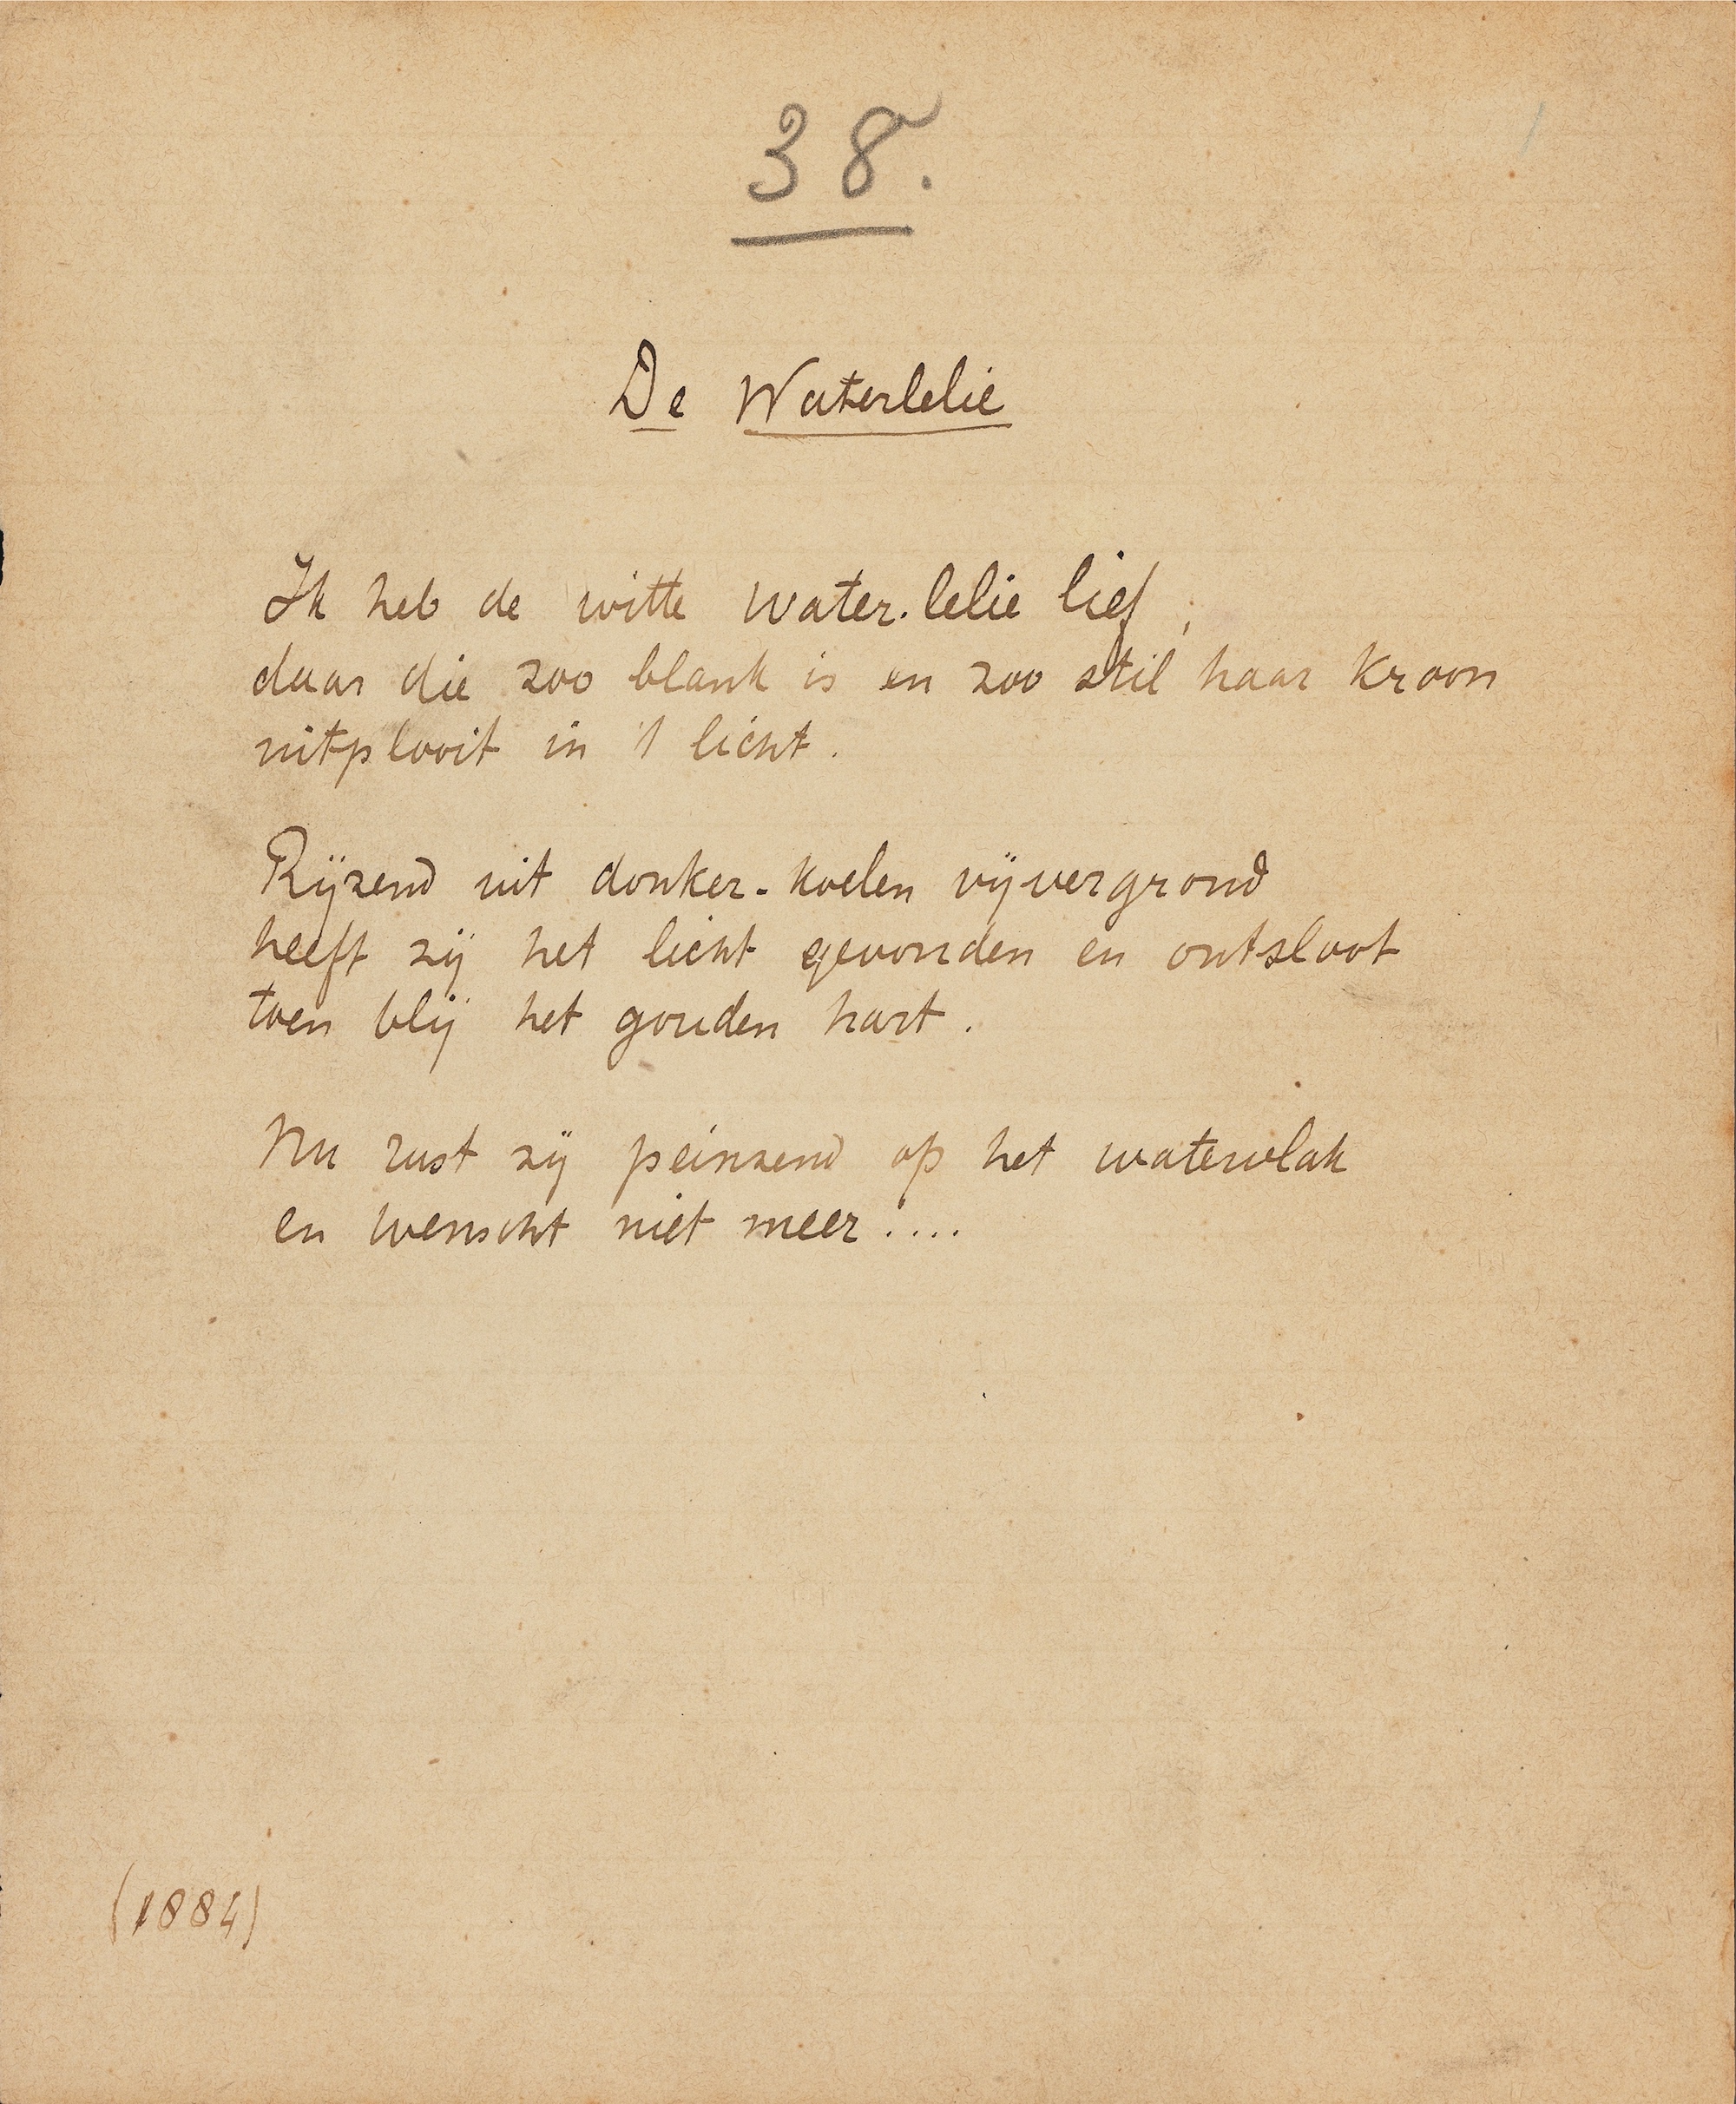 38.
De Waterlelie
Ik heb de witte water-lelie lief,
daar die zoo blank is en zoo stil haar kroon
uitplooit in 't licht.
Rijzend uit donker-koelen vijvergrond
heeft zij het licht gevonden en ontsloot
toen blij het gouden hart.
Nu rust zij peinzend op het watervlak
en wenscht niet meer....
(1884)